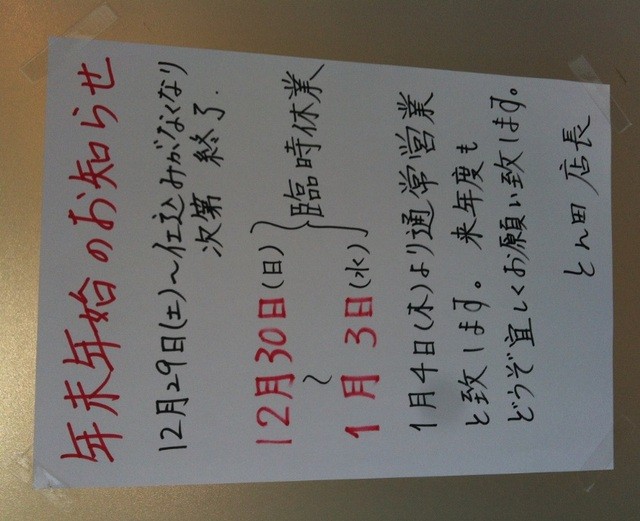 年末年始のお知らせ
12月29日(土)～仕込みがなくなり
次第 終了.
12月30日(日)
～
1月 3日(水)
臨時休業
1月4日(木)より通常営業
と致します。来年度も
どうぞ宜しくお願い致します。
とん田 店長